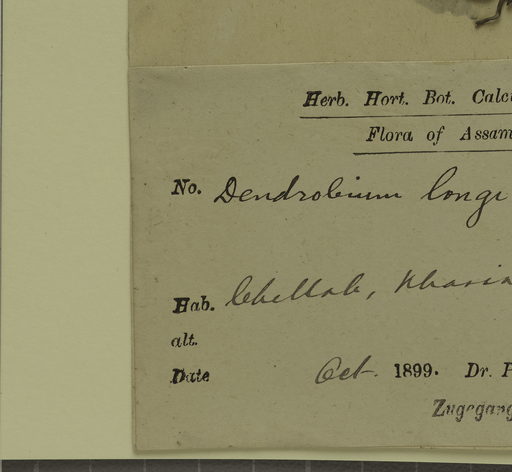 Herb. Hort. Bot. Calc
Flora of Assam
No. Dendrobium longi
Hab. Chellab, Khasia
alt.
Date Oct. 1899. Dr. P
Zugegang